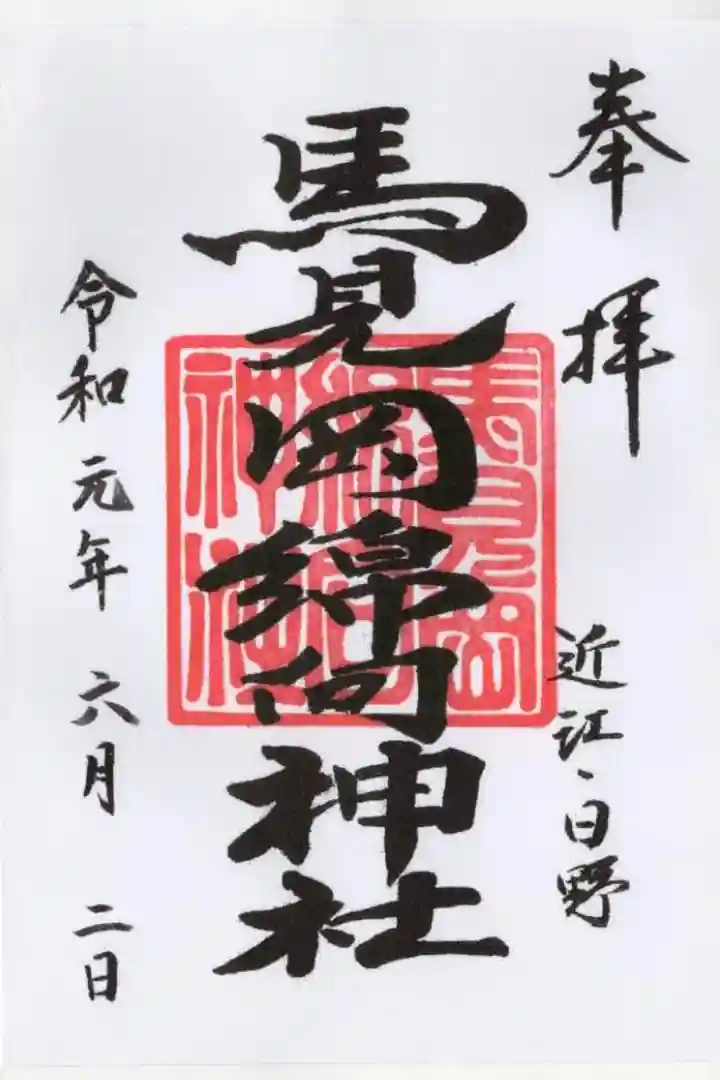 奉拝
近江、日野
馬見岡綿向神社
馬見岡
綿向
神社
令和元年六月二日